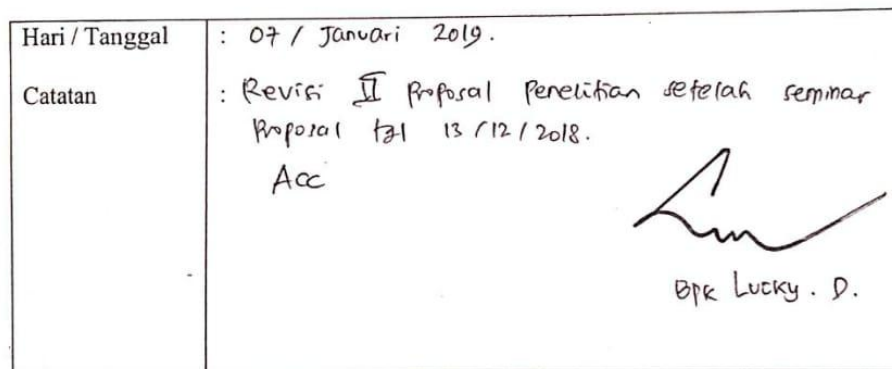 Hari / Tanggal : 07 / Januari 2019.
Catatan : Revisi II Proposal Penelitian setelah seminar
Proposal tgl 13/12/2018.
Acc
Bpk Lucky . D.